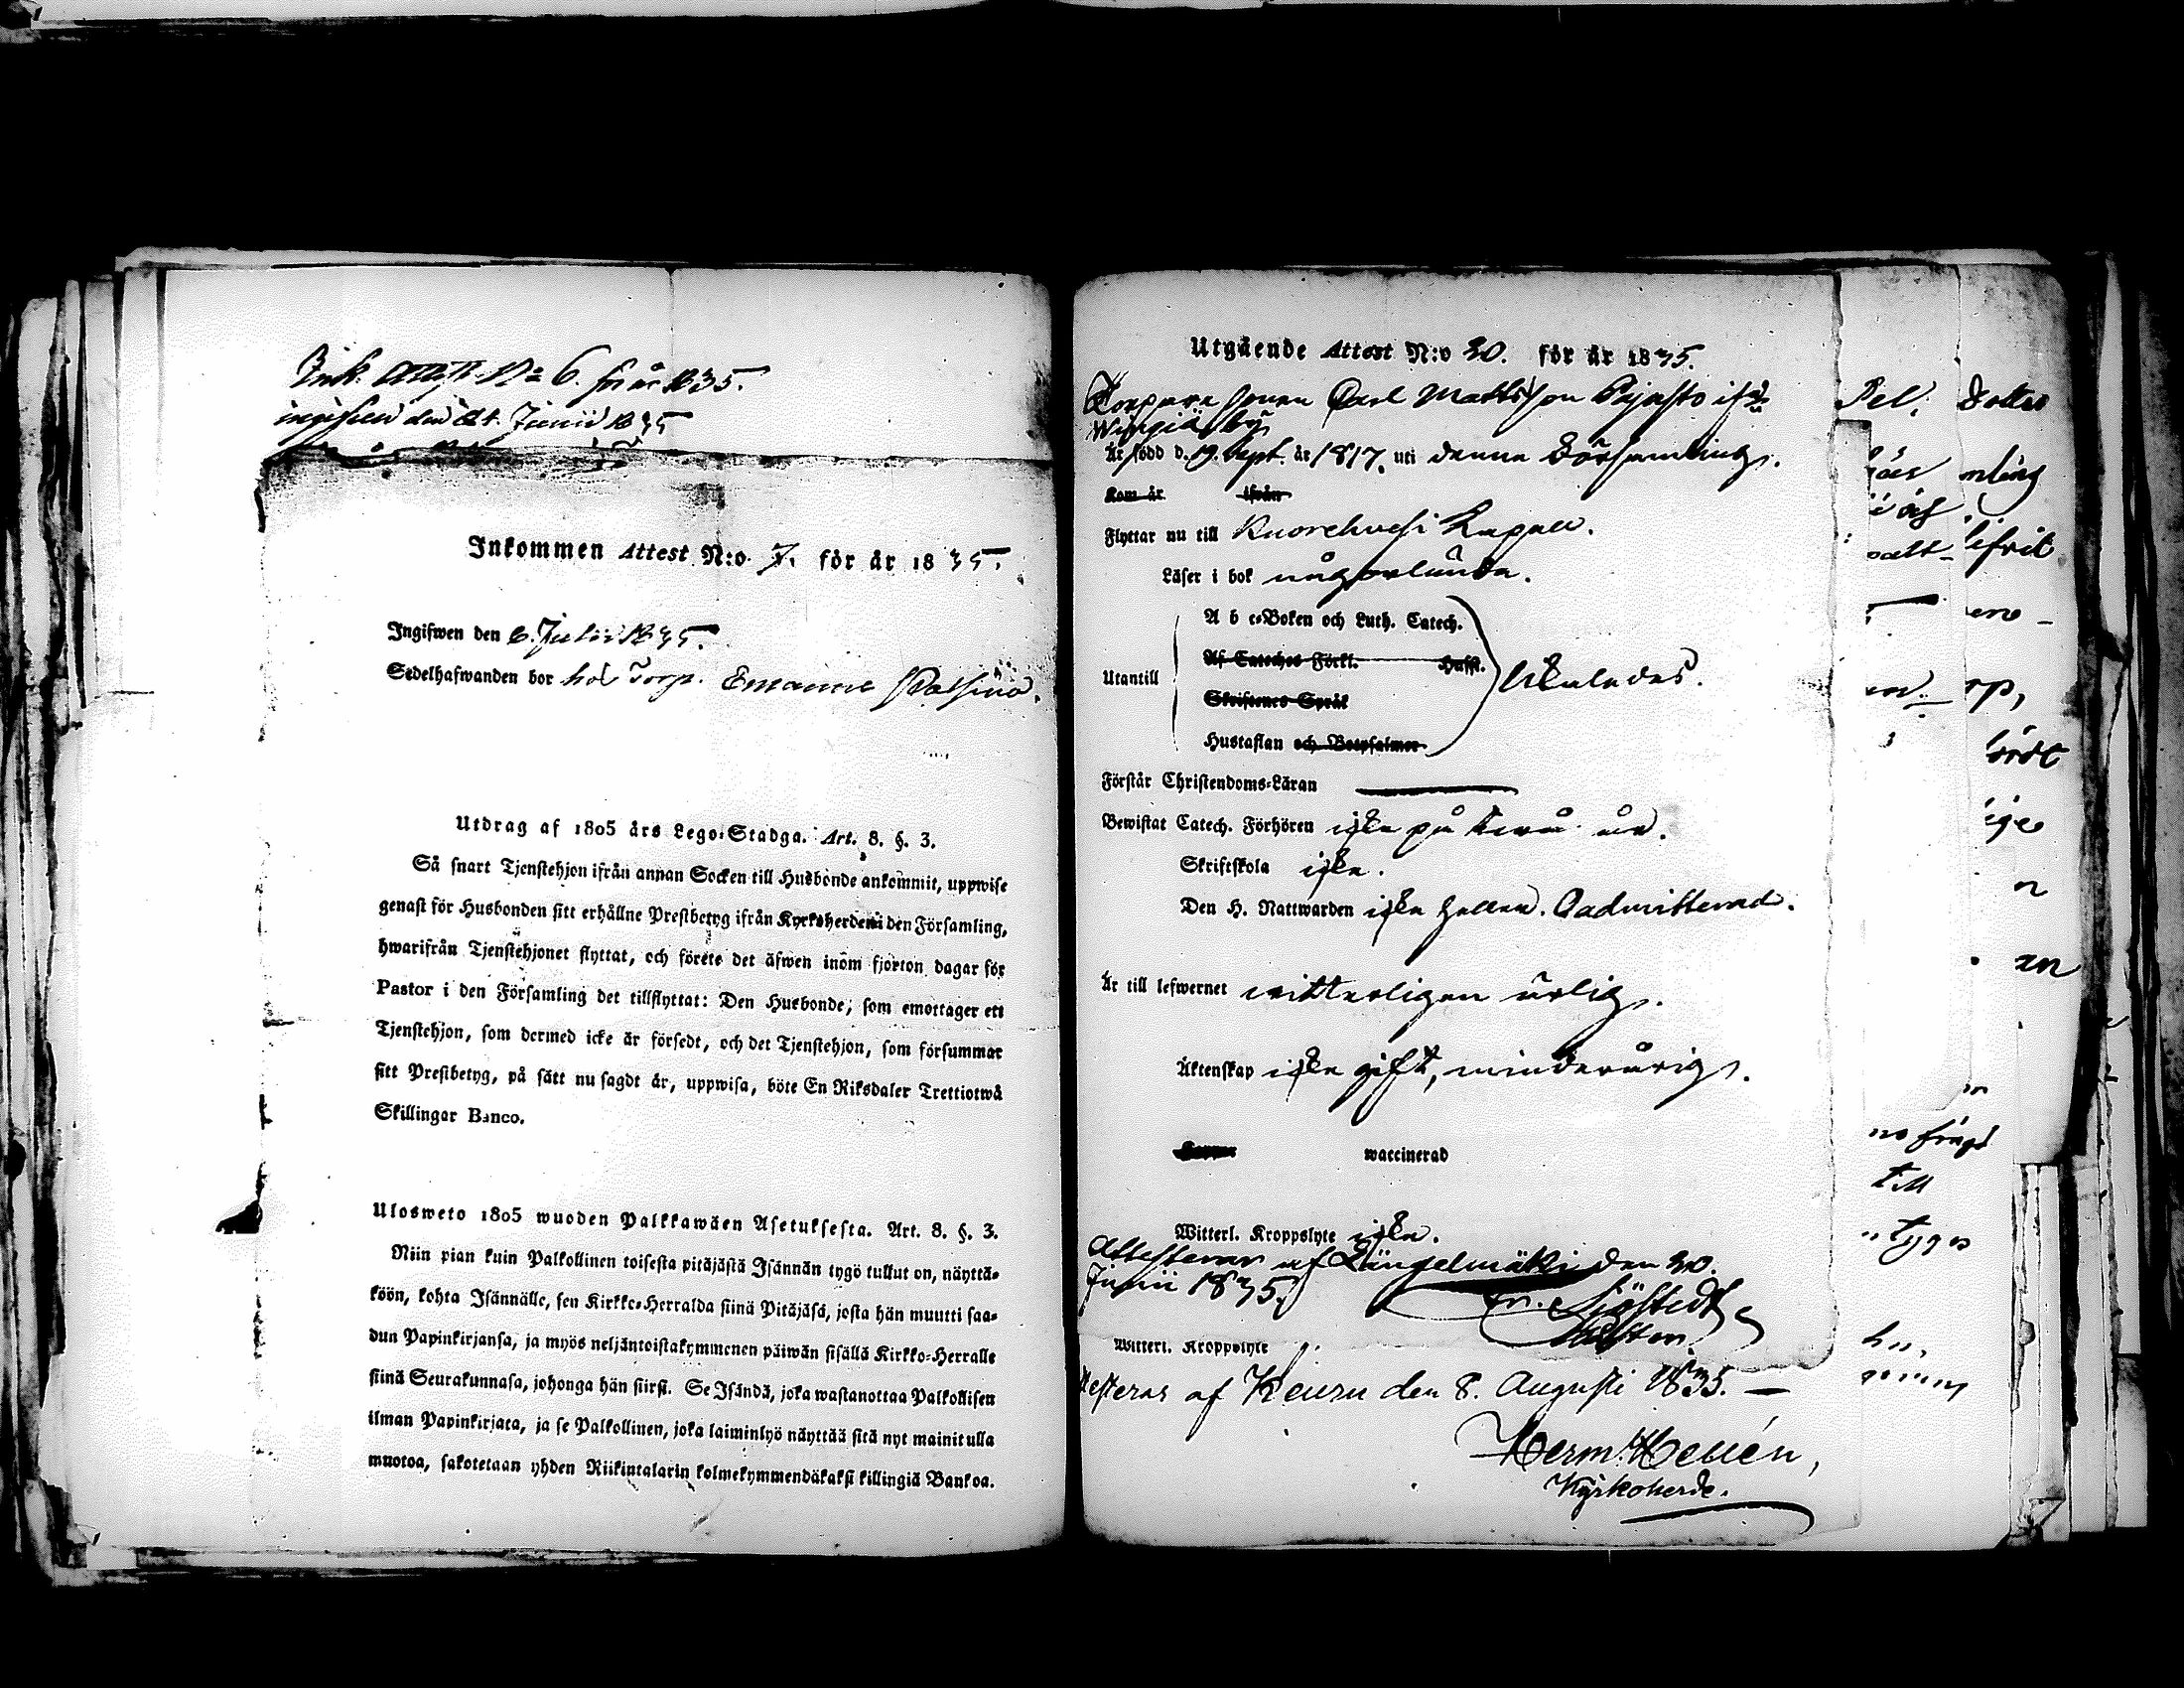 Ink. Attest No 6. för år 1835.
ingifven den 24. Junii 1835
Inkommen Attest N:o 7. för år 1835.
Ingifwen den 6. Julii 1835.
Sedelhafwanden bor hos Torp.
Utdrag af 1805 års Lego-Stadga. Art. 8. §. 3.
Så snart Tjenstehjon ifrån annan Socken till Husbonde ankommit, uppwise
genast för Husbonden sitt erhållne Prestbetyg ifrån Kyrkoherden i den Församling,
hwarifrån Tjenstehjonet flyttat, och förete det äfwen inom fjorton dagar för
Pastor i den Församling det tillflyttat: Den Husbonde, som emottager ett
Tjenstehjon, som dermed icke är försedt, och det Tjenstehjon, som försummar
sitt Prestbetyg, på sätt nu sagdt är, uppwisa, böte En Riksdaler Trettiotwå
Skillingar Banco.
Ulosweto 1805 wuoden Palkkawäen Asetuksesta. Art. 8. §. 3.
Niin pian kuin Palkollinen toisesta pitäjästä Isännän tygö tullut on, näyttä-
köön, kohta Isännälle, sen Kirkko-Herralda siinä Pitäjäsä, josta hän muutti saa-
dun Papinkirjansa, ja myös neljäntoistakymmenen päiwän sisällä Kirkko-Herralle
siinä Seurakunnasa, johonga hän siirsi. Se Isändä, joka wastanottaa Palkollisen
ilman Papinkirjata, ja se Palkollinen, joka laiminlyö näyttää sitä nyt mainitulla
muotoa, sakotetaan yhden Riikintalarin kolmekymmendäkaksi killingiä Bankoa.
Utgående Attest N:o 30. för år 1835.
Torpare sonen Carl Mattsson Pajasto ifrån
by
Är född d. 19. Sept. år 1817. uti denna Församling.
Kom år ifrån
Flyttar nu till Kuorehvesi Kapell.
Läser i bok någorlunda.
A b c-Boken och Luth. Catech.
Af Cateches Förkl. Hussl.
Utantill Likaledes.
Skriftenes Språk
Hustaflan och Botpsalmer
Förstår Christendoms-Läran
Bewistat Catech. Förhören icke på två år.
Skriftskola icke.
Den H. Nattwarden icke heller. Oadmitterad.
Är till lefwernet witterligen ärlig.
Äktenskap icke gift, minderårig.
waccinerad
Witterl. Kroppslyte icke.
Attesterar af Längelmäki den 30.
Junii 1835.
Sjöstedt
Pastor.
Witterl. Kroppslyte
testeras af Keuru den 8. Augusti 1835. —
Herm. Hellén,
Kyrkoherde.